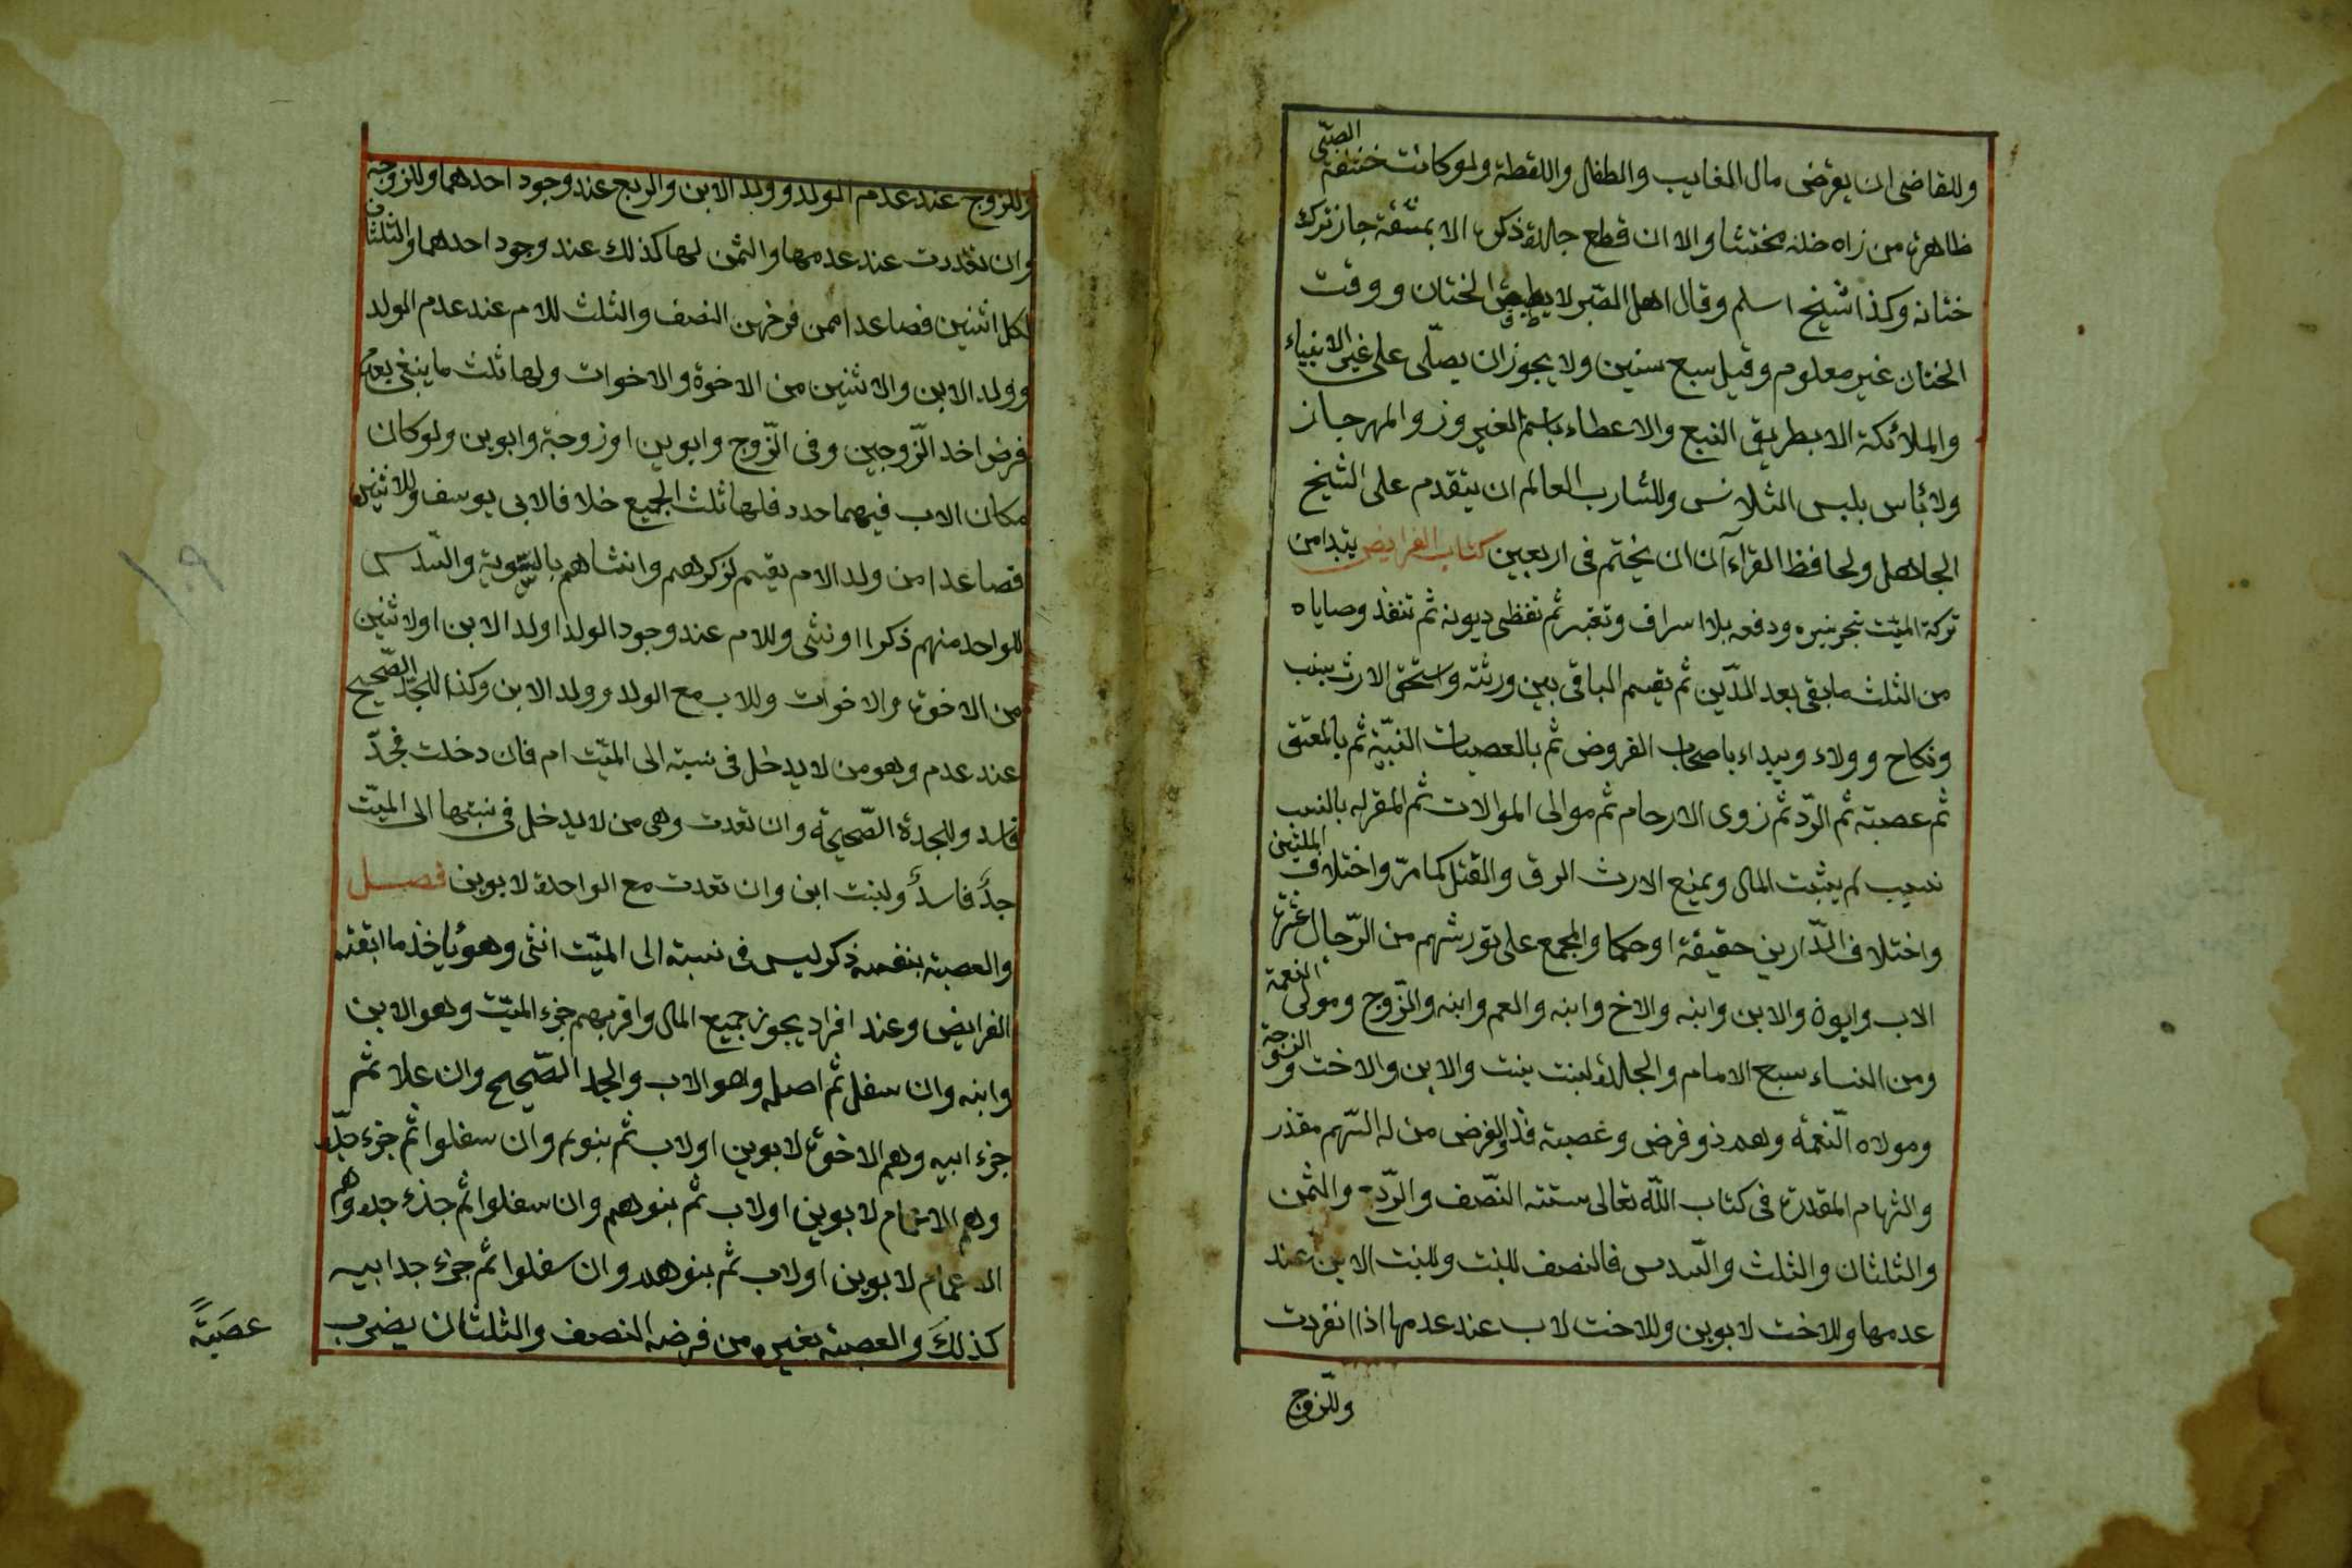 وللقاضى ان يقرض مال الغايب والطفل واللقطة ولو كانت ختفة الصبى
ظاهرة من زاه ظنه مختتنا والا ان قطع جلدة ذكره الا بمشقة جاز ترك
ختانه وكذا شيخ اسلم وقال اهل البصر لا يطيق الختان ووقت
الختان غير معلوم وقيل سبع سنين ولا يجوز ان يصلّى على غير الانبياء
والملائكة الا بطريق التبع والاعطاء باسم النيروز والمهرجان
ولا بأس بلبس الثلانس وللشارب العالم ان يتقدم على الشيخ
الجاهل ولحافظ القرآءن ان يختم فى اربعين كتاب الفرايض يتبدا من
تركة الميّت بتجهيزه ودفعه بلا اسراف وتقتير ثم تقظى ديونه ثم تنفذ وصاياه
من الثلث ما بقى بعد الدّين ثم يقسم الباقى بين ورثته واستحق الارث بنسب
ونكاح وولاء ويبداء باصحاب الفروض ثم بالعصبات النسبيّة ثم بالمعتق
ثم عصبته ثم الردّ ثم زوى الارحام ثم موالى الموالات ثم المقر له بالنسب
نسيب لم يثبت المال ويمنع الارث الرق والقتل كما مرّ واختلاف الملتين
واختلاف الدّارين حقيقة او حكما والمجمع على تورشهم من الرّجال عشرة
الاب وابوه والابن وابنه والاخ وابنه والعم وابنه والزّوج ومولى النعمة
ومن النساء سبع الامام والجدة لبنت بنت والابن والاخت والزوجة
ومولاه النّعمة وهم ذو فرض وعصبته فذ والفرض من له السّهم مقدر
والسّهام المقدرة فى كتاب اللّه تعالى ستته النّصف والردّ والثمن
والثلثان والثلث والسّدس فالنصف للبنت وللبنت الابن عند
عدمها وللاخت لابوين وللاخت لاب عند عدمها اذا انفردت
وللزوج
وللزوج عند عدم الولد وولد الابن والربع عند وجود احدهما وللزوجة
وان تعددت عند عدمها والثمن لها كذلك عند وجود احدهما والثلثان
لكل اثنين فصاعدا ممن فرضهن النصف والثلث للام عند عدم الولد
وولد الابن والاثنين من الاخوة والاخوات ولها ثلث ما ينغى بعد
فرض احد الزّوجين وفى الزّوج وابوين او زوجة وابوين ولو كان
مكان الاب فيهما حدد فلها ثلث الجميع خلافا لابى يوسف وللاثنين
فصاعدا من ولد الام يقسم لذكرهم وانشاهم بالسّوية والسّدس
للواحد منهم ذكرا او نثى وللام عند وجود الولد او ولد الابن او لاثنين
من الاخوة والاخوات وللاب مع الولد وولد الابن وكذا للجدّ الصّحيح
عند عدم وهو من لا يدخل فى نسبته الى الميّت ام فان دخلت فجدّ
فاسد وللجدة الصّحيحة وان تعدت وهى من لا يدخل فى نسبتها الى الميّت
جدّ فاسد ولبنت ابن وان تعدت مع الواحدة لابوين فصل
والعصبته بنفسه ذكر ليس فى نسبته الى الميّت انثى وهو ياخذ ما ابقته
الفرايض وعند افراد يجوز جميع المال واقربهم جزء الميّت وهو الابن
وابنه وان سفل ثم اصله وهو الاب والجد الصّحيح وان علا ثم
جزء ابيه وهم الاخوة لابوين او لاب ثم بنوهم وان سفلوا ثم جزء جدّه
وهم الاعمام لابوين او لاب ثم بنوهم وان سفلوا ثم جزء جده وهم
الاعمام لابوين او لاب ثم بنوهم وان سفلوا ثم جزء جد ابيه
كذلك والعصبته بغيره من فرضه النصف والثلثان يضرب
عصَبَتهً
١٠٩